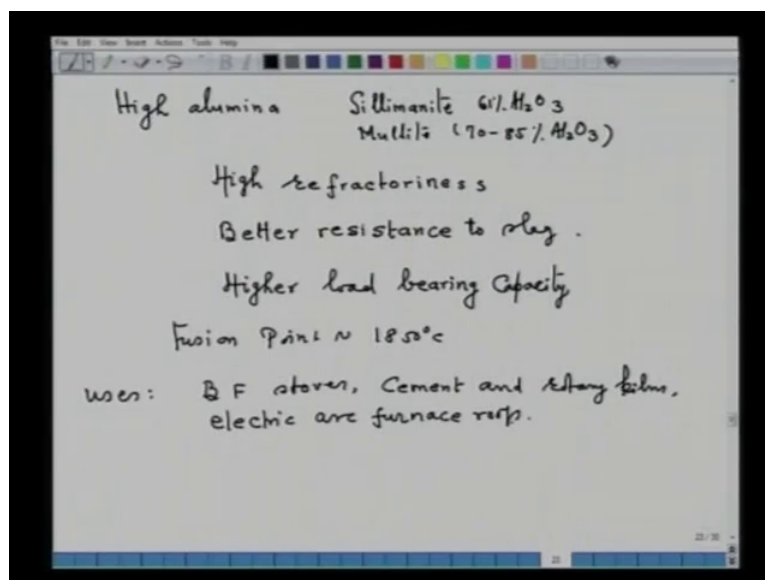 File Edit View Insert Actions Tools Help
High alumina Sillimanite 61% Al2O3
Mullite (70-85% Al2O3)
High refractoriness
Better resistance to slag.
Higher load bearing Capacity
Fusion Point ~ 1850°C
uses: BF stoves, Cement and rotary kilns,
electric arc furnace roof.